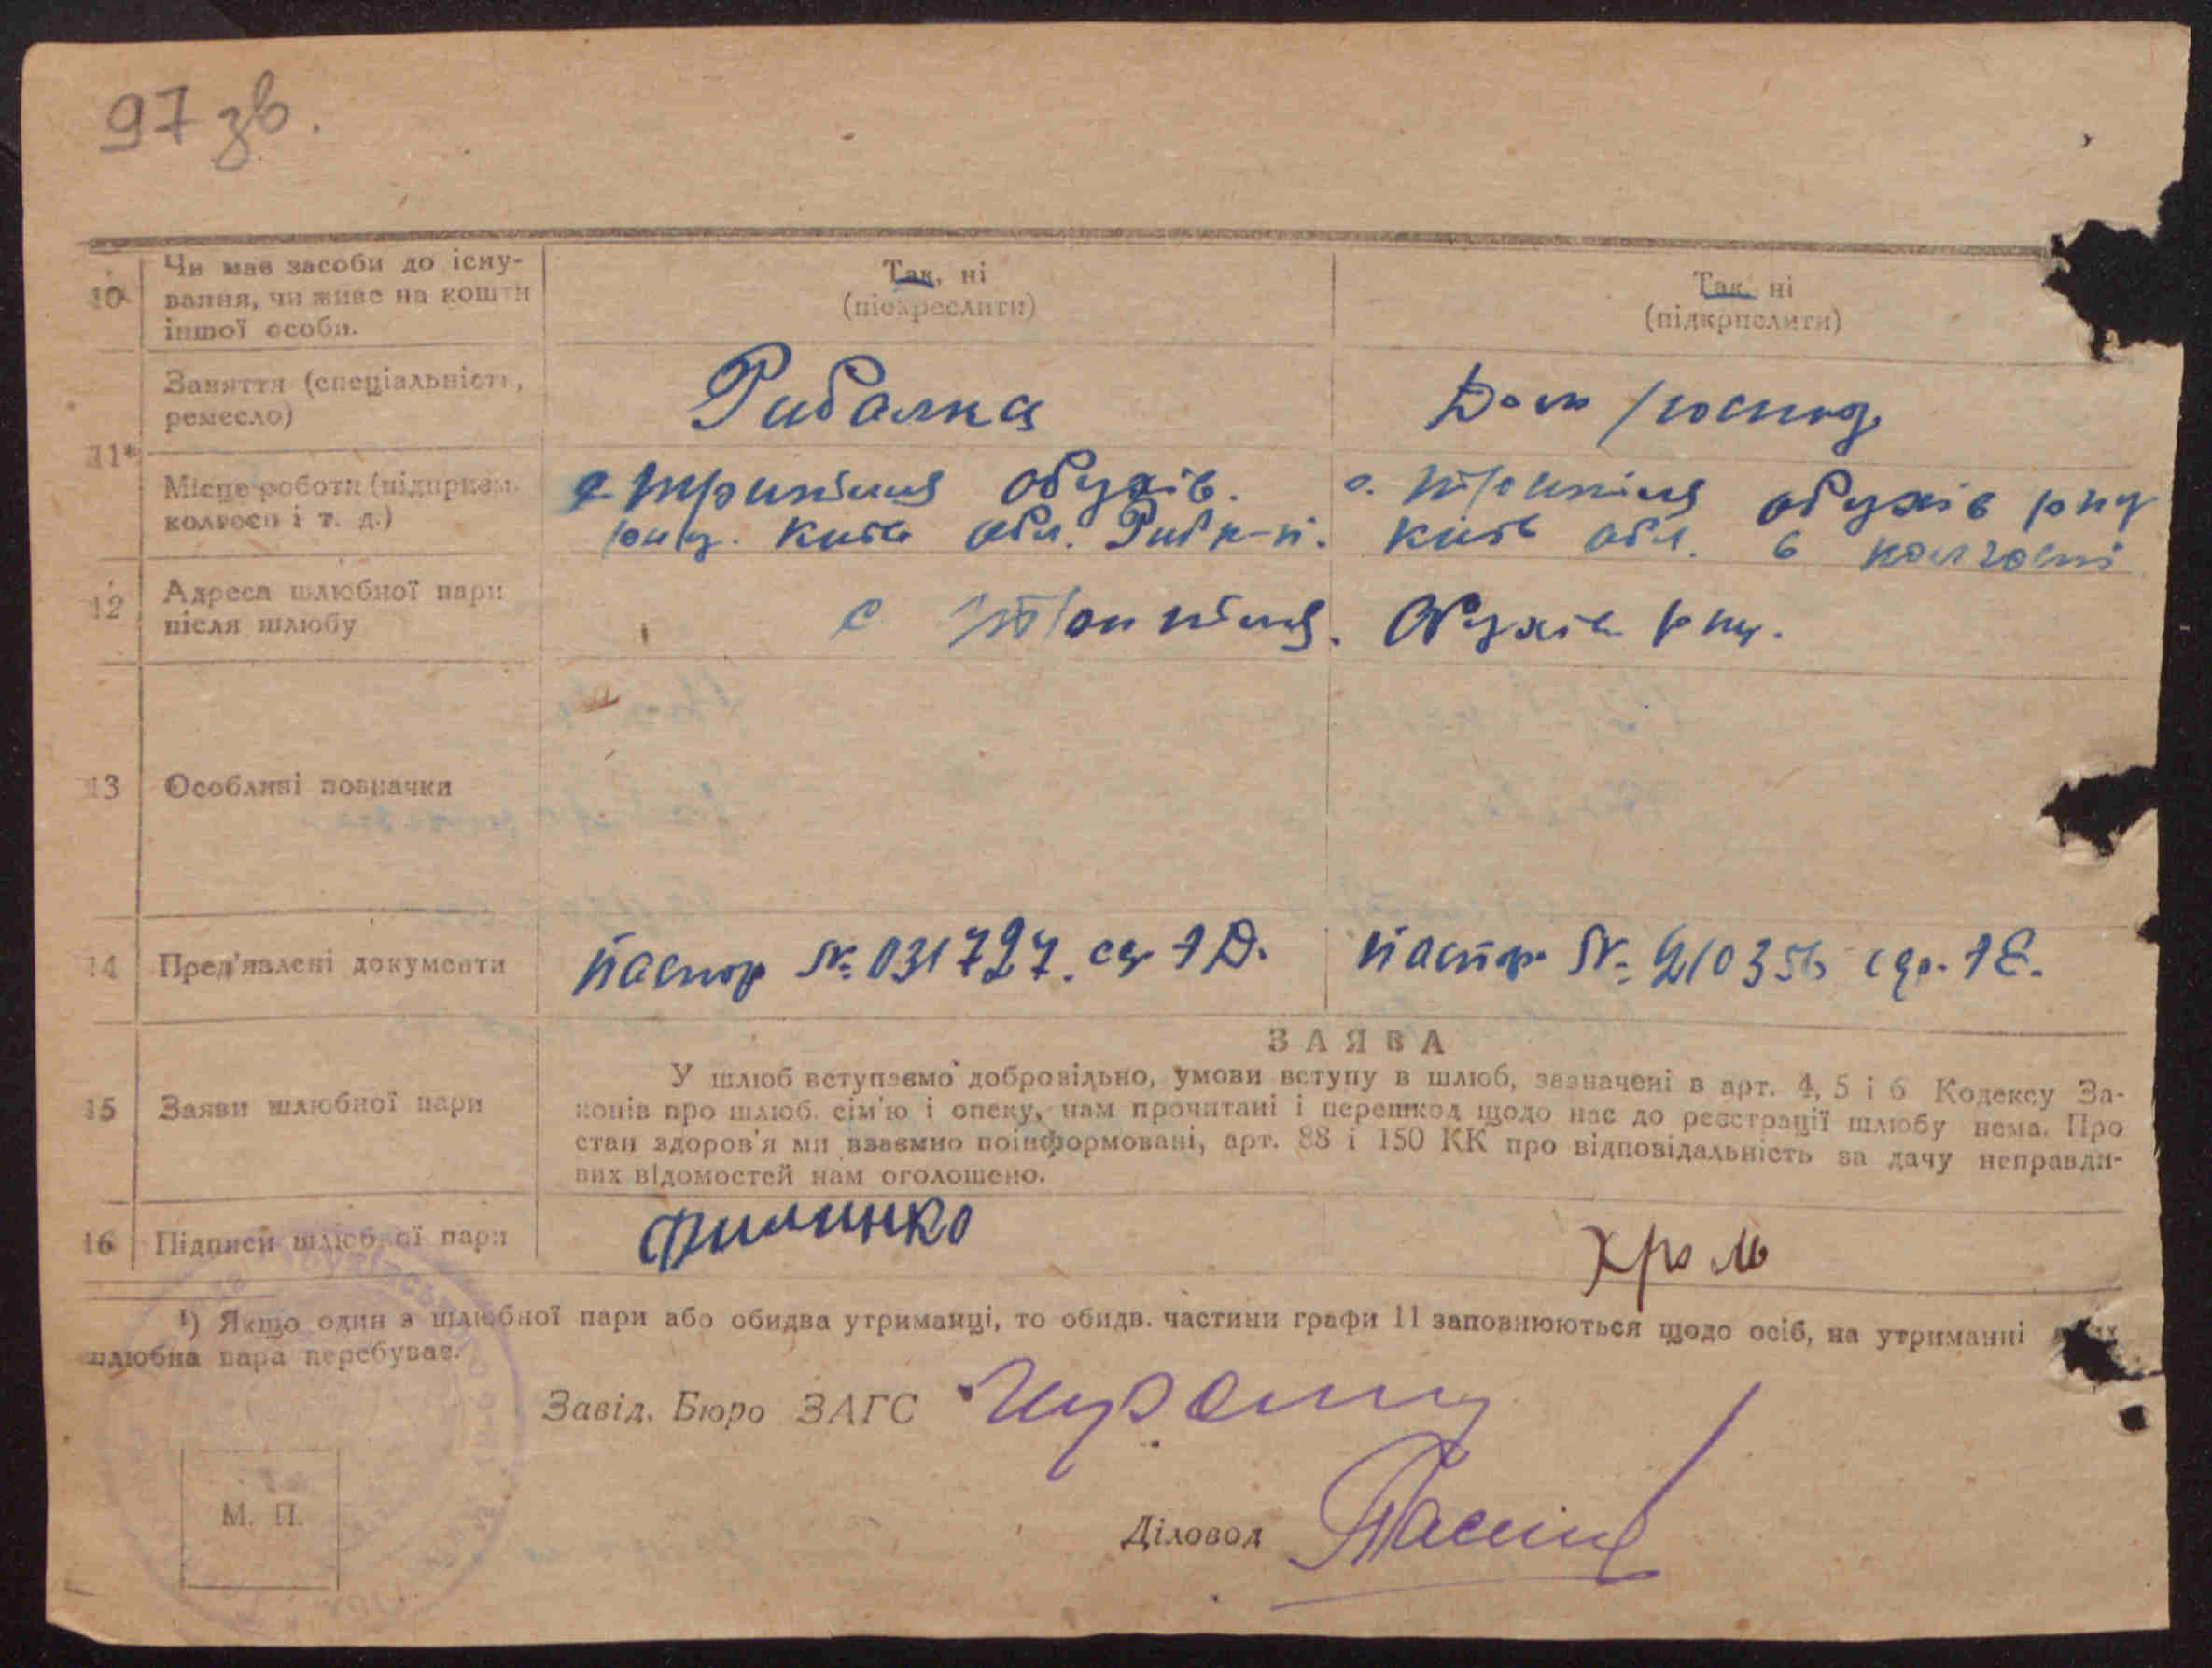 97 зв.
10 Чи має засоби до існу-
вання, чи живе на кошти
іншої особи.
Так, ні
(підкреслити)
Так, ні
(підкрпслити)
11*
Заняття (спеціальність,
ремесло)
Рибалка
Дом /господ
Місце роботи (підприєм.
колгосп і т. д.)
с. Трипілля Обухів.
рну. Київ обл. Риб к-п.
с. Трипілля Обухів рну
Київ обл. в колгоспі
12 Адреса шлюбної пари
після шлюбу
с Трипілля. Обухів рну.
13 Особливі позначки
14 Пред'явлені документи
Паспор № 031727. 1 Д.
Паспор № 210356 1 Е.
ЗАЯВА
15 Заяви шлюбної пари
У шлюб вступаємо добровільно, умови вступу в шлюб, зазначені в арт. 4, 5 і 6 Кодексу За-
конів про шлюб. сім'ю і опеку, нам прочитані і перешкод щодо нас до реєстрації шлюбу нема. Про
стан здоров'я ми взаємно поінформовані, арт. 88 і 150 КК про відповідальність за дачу неправди-
вих відомостей нам оголошено.
16 Підписи шлюбної пари
Филинко
Кроль
¹) Якщо один з шлюбної пари або обидва утриманці, то обидв. частини графи 11 заповнюються щодо осіб, на утриманні
шлюбна пара перебуває.
Завід. Бюро ЗАГС
Діловод
М. П.